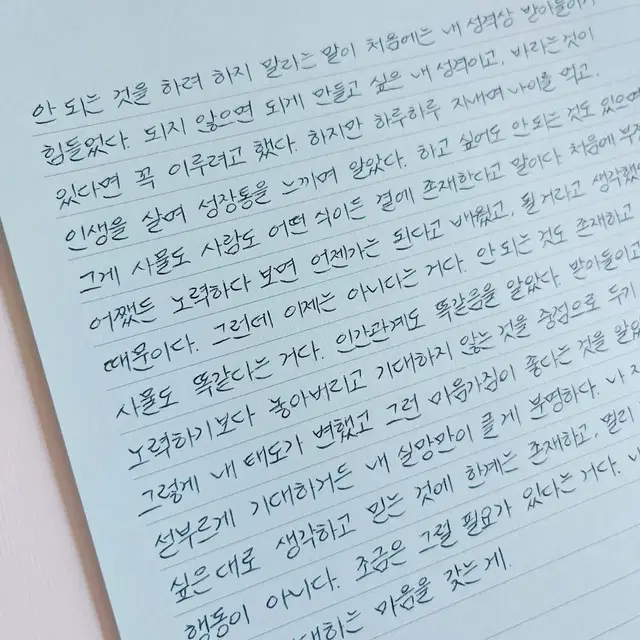 안 되는 것을 하려 하지 말라는 말이 처음에는 내 성격상 받아들이기
힘들었다. 되지 않으면 되게 만들고 싶은 내 성격이고, 바라는것이
있다면 꼭 이루려고 했다. 하지만 하루하루 지내며 나이를 먹고,
인생을 살며 성장통을 느끼며 알았다. 하고 싶어도 안되는 것도 있으며
그게 사물도 사람도 어떤 식이든 곁에 존재한다고 말이다. 처음에 부정
어쨌든 노력하다 보면 언젠가는 된다고 배웠고, 될 거라고 생각했
때문이다. 그런데 이제는 아니다는 거다. 안 되는 것도 존재하고
사물도 똑같다는 거다. 인간관계도 똑같음을 알았다. 받아들이고
노력하기보다 놓아버리고 기대하지 않는 것을 중점으로 두기
그렇게 내 태도가 변했고 그런 마음가짐이 좋다는 것을 알았
섣부르게 기대하거든 내 실망만이 클 게 분명하다. 나 자
싶은대로 생각하고 믿는 것에 한계는 존재하고, 멀리
행동이 아니다. 조금은 그럴 필요가 있다는 거다. 나
대하는 마음을 갖는 게.